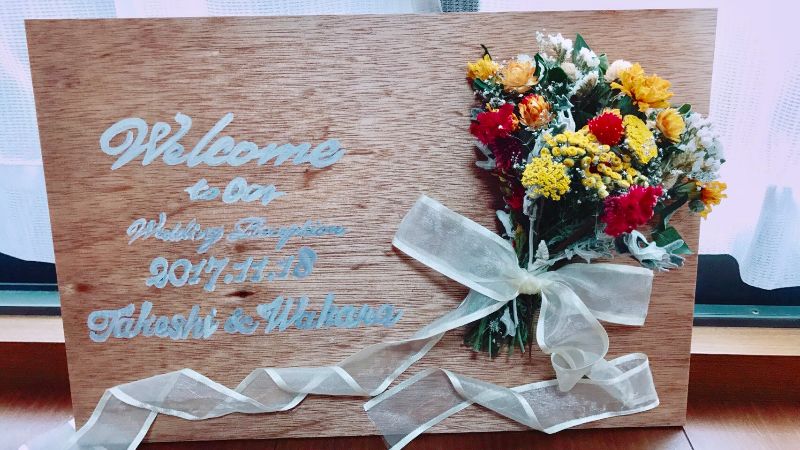 Welcome
to Our
Wedding Reception
2017.11.18
Takeshi & Wakana